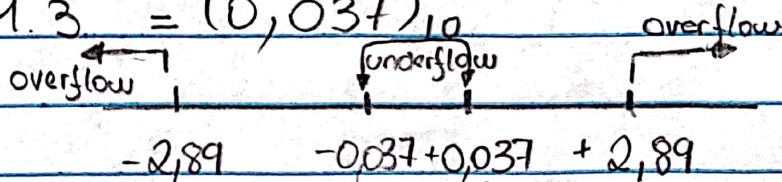 1.3 = (0,037)10
overflow underflow overflow
-2,89 -0,037 +0,037 + 2,89